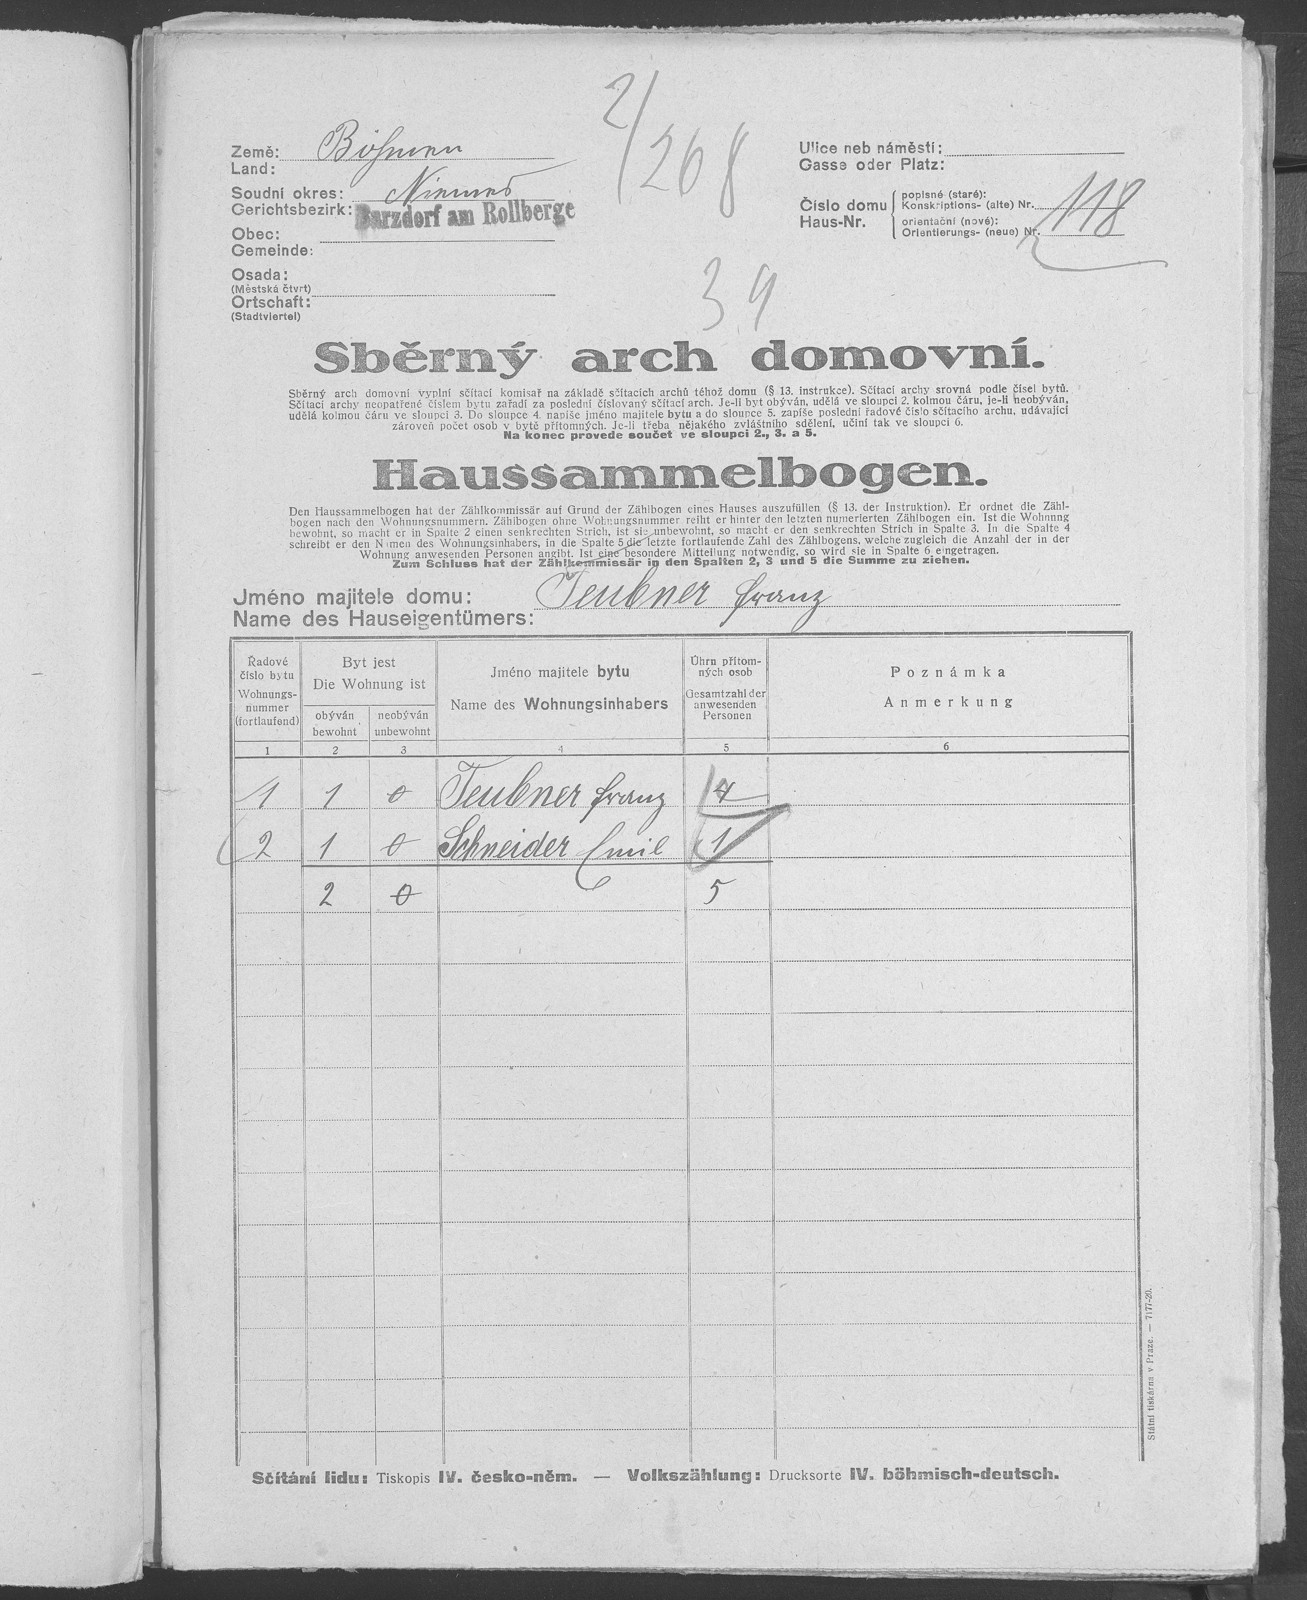 2/268
Země: Böhmen
Land:
Soudní okres: Niemes
Gerichtsbezirk:
Barzdorf am Rollberge
Obec:
Gemeinde:
Osada:
(Městská čtvrt)
Ortschaft:
(Stadtviertel)
Ulice neb náměstí:
Gasse oder Platz:
Číslo domu
Haus-Nr.
popisné (staré):
Konskriptions- (alte) Nr.
orientační (nové):
Orientierungs- (neue) Nr.
118
39
Sběrný arch domovní.
Sběrný arch domovní vyplní sčítací komisař na základě sčítacích archů téhož domu (§ 13. instrukce). Sčítací archy srovná podle čísel bytů.
Sčítací archy neopatřené číslem bytu zařadí za poslední číslovaný sčítací arch. Je-li byt obýván, udělá ve sloupci 2. kolmou čáru, je-li neobýván,
udělá kolmou čáru ve sloupci 3. Do sloupce 4. napíše jméno majitele bytu a do sloupce 5. zapíše poslední řadové číslo sčítacího archu, udávající
zároveň počet osob v bytě přítomných. Je-li třeba nějakého zvláštního sdělení, učiní tak ve sloupci 6.
Na konec provede součet ve sloupci 2., 3. a 5.
Haussammelbogen.
Den Haussammelbogen hat der Zählkommissär auf Grund der Zählbogen eines Hauses auszufüllen (§ 13. der Instruktion). Er ordnet die Zähl-
bogen nach den Wohnungsnummern. Zählbogen ohne Wohnungsnummer reiht er hinter den letzten numerierten Zählbogen ein. Ist die Wohnung
bewohnt, so macht er in Spalte 2 einen senkrechten Strich, ist sie unbewohnt, so macht er den senkrechten Strich in Spalte 3. In die Spalte 4
schreibt er den Namen des Wohnungsinhabers, in die Spalte 5 die letzte fortlaufende Zahl des Zählbogens, welche zugleich die Anzahl der in der
Wohnung anwesenden Personen angibt. Ist eine besondere Mitteilung notwendig, so wird sie in Spalte 6 eingetragen.
Zum Schluss hat der Zählkommissär in den Spalten 2, 3 und 5 die Summe zu ziehen.
Jméno majitele domu: Teubner Franz
Name des Hauseigentümers:
Řadové
číslo bytu
Wohnungs-
nummer
(fortlaufend)
Byt jest
Die Wohnung ist
obýván
bewohnt
neobýván
unbewohnt
Jméno majitele bytu
Name des Wohnungsinhabers
Úhrn přítom-
ných osob
Gesamtzahl der
anwesenden
Personen
Poznámka
Anmerkung
1 2 3 4 5 6
1 1 0 Teubner Franz 4
2 1 0 Schneider Emil 1
2 0 5
Sčítání lidu: Tiskopis IV. česko-něm. — Volkszählung: Drucksorte IV. böhmisch-deutsch.
Státní tiskárna v Praze. — 7177-20.